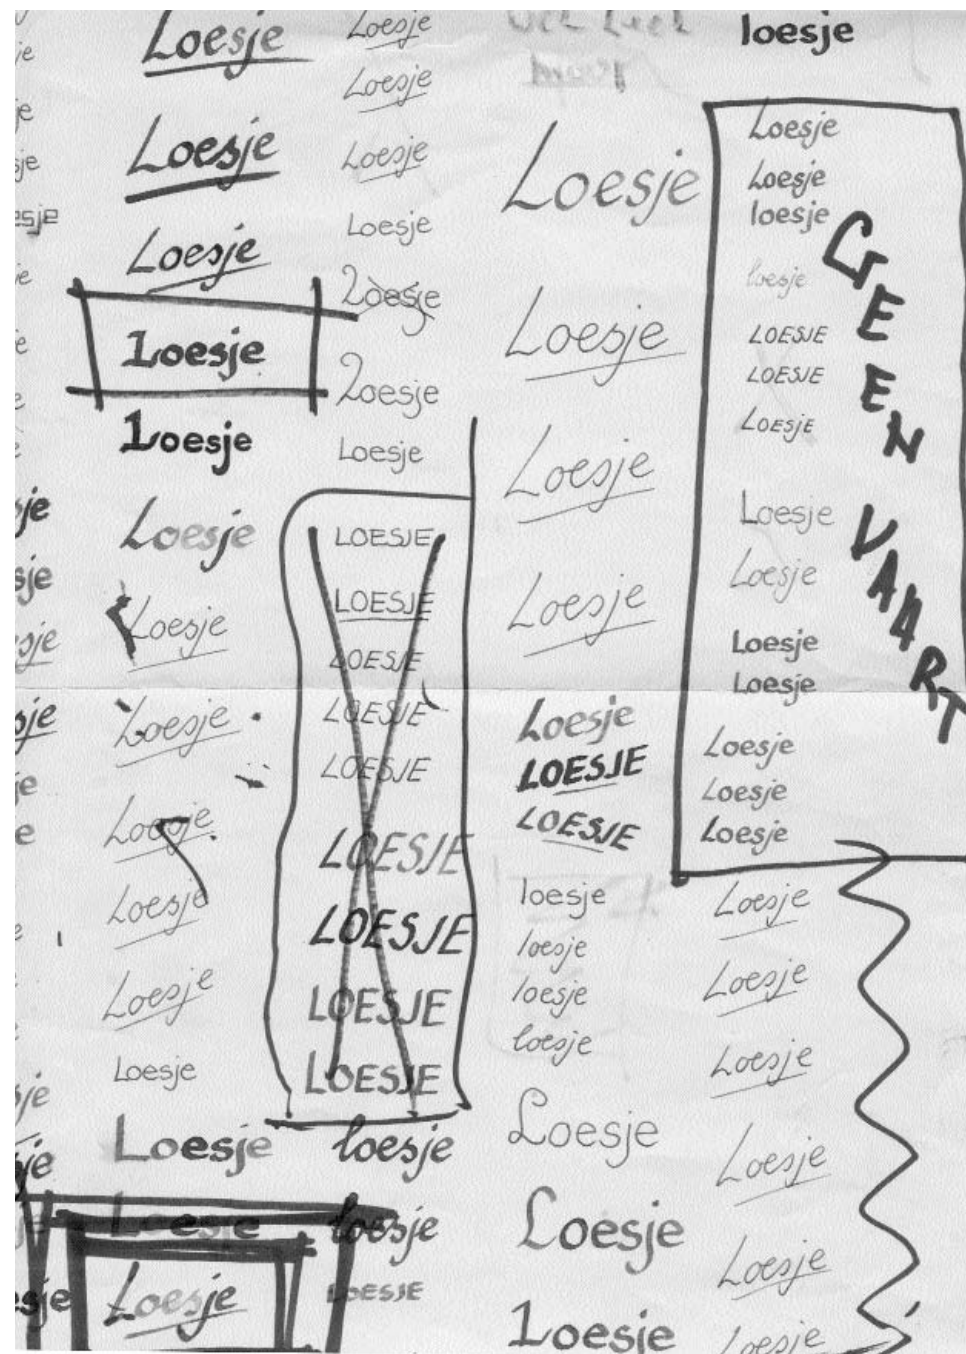 Loesje
Loesje
Loesje
Loesje
Loesje
Loesje
Loesje
Loesje
Loesje
Loesje
Loesje
Loesje
Loesje
Loesje
Loesje
Loesje
Loesje
Loesje
Loesje
Loesje
Loesje
Loesje
LOESJE
LOESJE
LOESJE
LOESJE
LOESJE
LOESJE
LOESJE
LOESJE
LOESJE
loesje
loesje
LOESJE
Loesje
Loesje
Loesje
Loesje
Loesje
LOESJE
LOESJE
loesje
loesje
loesje
loesje
Loesje
Loesje
Loesje
loesje
Loesje
Loesje
loesje
loesje
LOESJE
LOESJE
LOESjE
Loesje
Loesje
Loesje
Loesje
Loesje
Loesje
Loesje
Loesje
Loesje
Loesje
Loesje
Loesje
Loesje
GEEN VAART